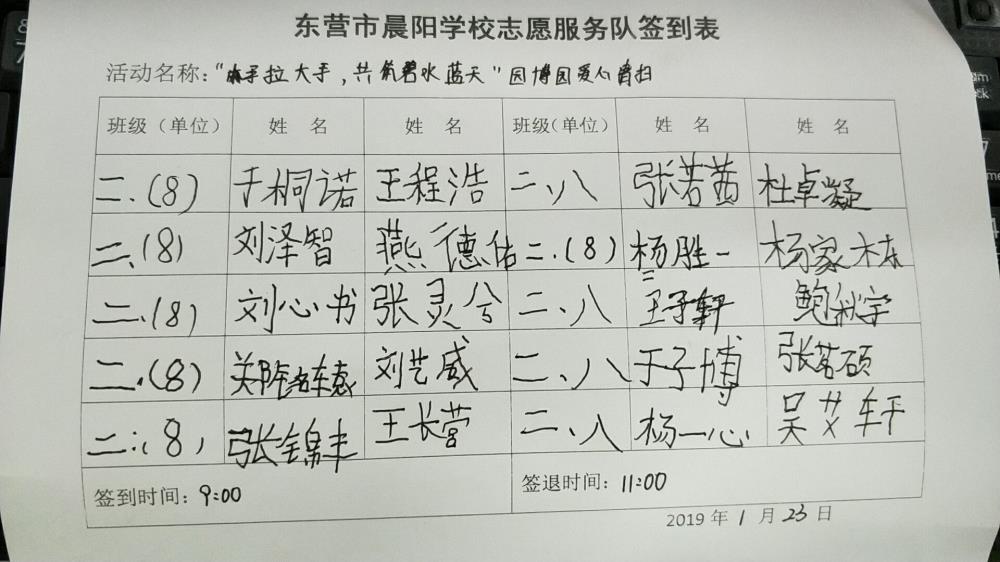 东营市晨阳学校志愿服务队签到表
活动名称：“小手拉大手，共筑碧水蓝天”园博园爱心清扫
班级（单位） 姓 名 姓 名 班级（单位） 姓 名 姓 名
二.(8) 于桐诺 王程浩 二、八 张若茜 杜卓凝
二.(8) 刘泽智 燕德佑 二.(8) 杨胜一 杨家栋
二.(8) 刘心书 张灵兮 二、八 王子轩 鲍秋宇
二.(8) 刘艺威 二、八 于子博 张茗硕
二.(8) 张锦丰 王长营 二、八 杨一心 吴艾轩
签到时间：9:00 签退时间：11:00
2019年1月23日